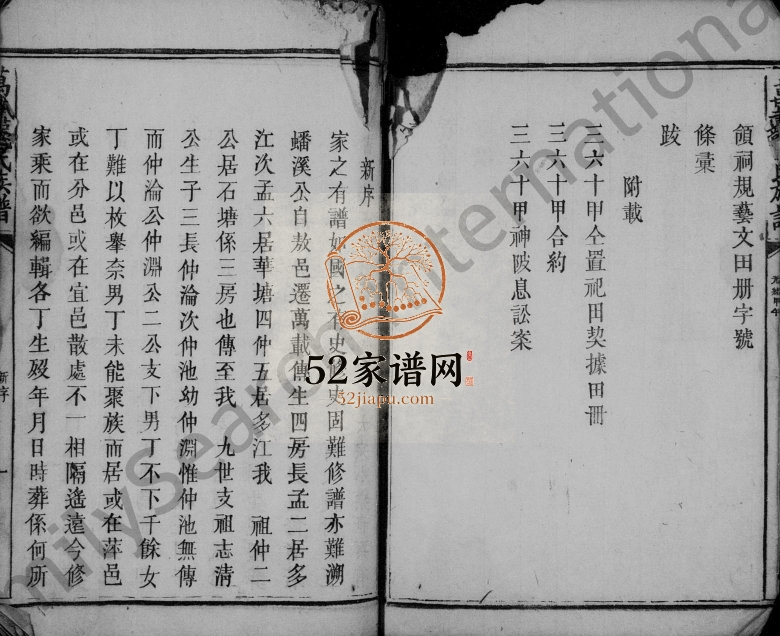 頒祠規藝文田册字號
條彙
跋
附載
三六十甲仝置祀田契據田冊
三六十甲合約
三六十甲神陂息訟案
新序
家之有譜如國之有史修史固難修譜亦難溯
蟠溪公自敖邑遷萬載傳生四房長孟二居多
江次孟六居華塘四仲五居多江我 祖仲二
公居石塘係三房也傳至我 九世支祖志清
公生子三長仲淪次仲池幼仲淵惟仲池無傳
而仲淪公仲淵公二公支下男丁不下千餘女
丁難以枚舉奈男丁未能聚族而居或在萍邑
或在分邑或在宜邑散處不一相隔遙遠今修
家乘而欲編輯各丁生歿年月日時葬係何所
新序
一
52家谱网
52jiapu.com
milySearch International